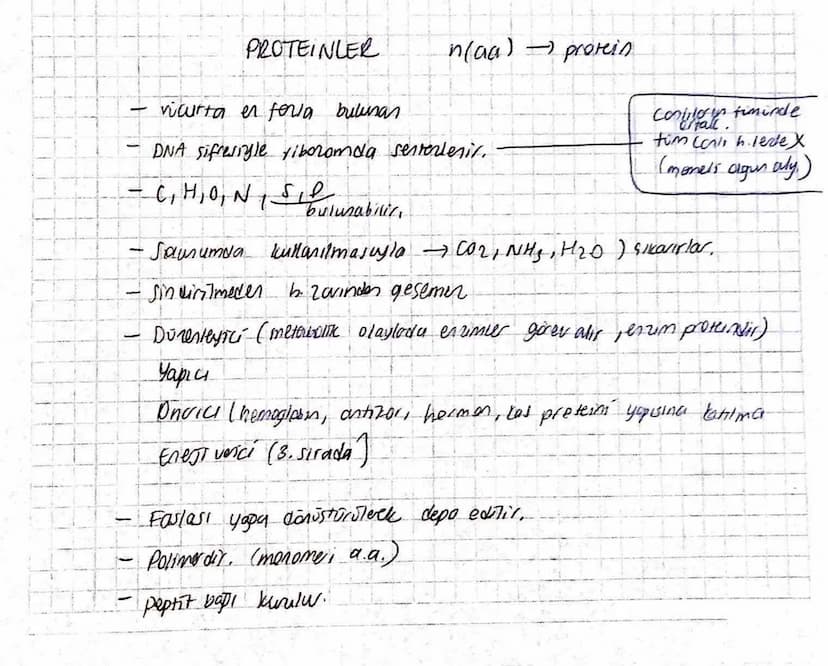 PROTEİNLER n(aa) → protein
- vücutta en fazla bulunan
- DNA şifresiyle ribozomda sentezlenir.
Canlıların tümünde
ortak.
tüm canlı h.lerde X
(memeli olgun aly.)
- C, H, O, N, S, P
bulunabilir.
- Solunumda kullanılmasıyla → CO2, NH3, H2O ) çıkarırlar.
- Sindirilmeden h. zarından geçemez
- Düzenleyici (metabolik olaylada enzimler görev alır, enzim proteindir)
Yapıcı
Onarıcı (hemoglobin, antikor, hormon, kas proteini yapısına katılma
Enerji verici (3. sırada)
- Fazlası yağa dönüştürülerek depo edilir.
- Polimerdir. (monomeri a.a.)
- peptit bağı kurulur.